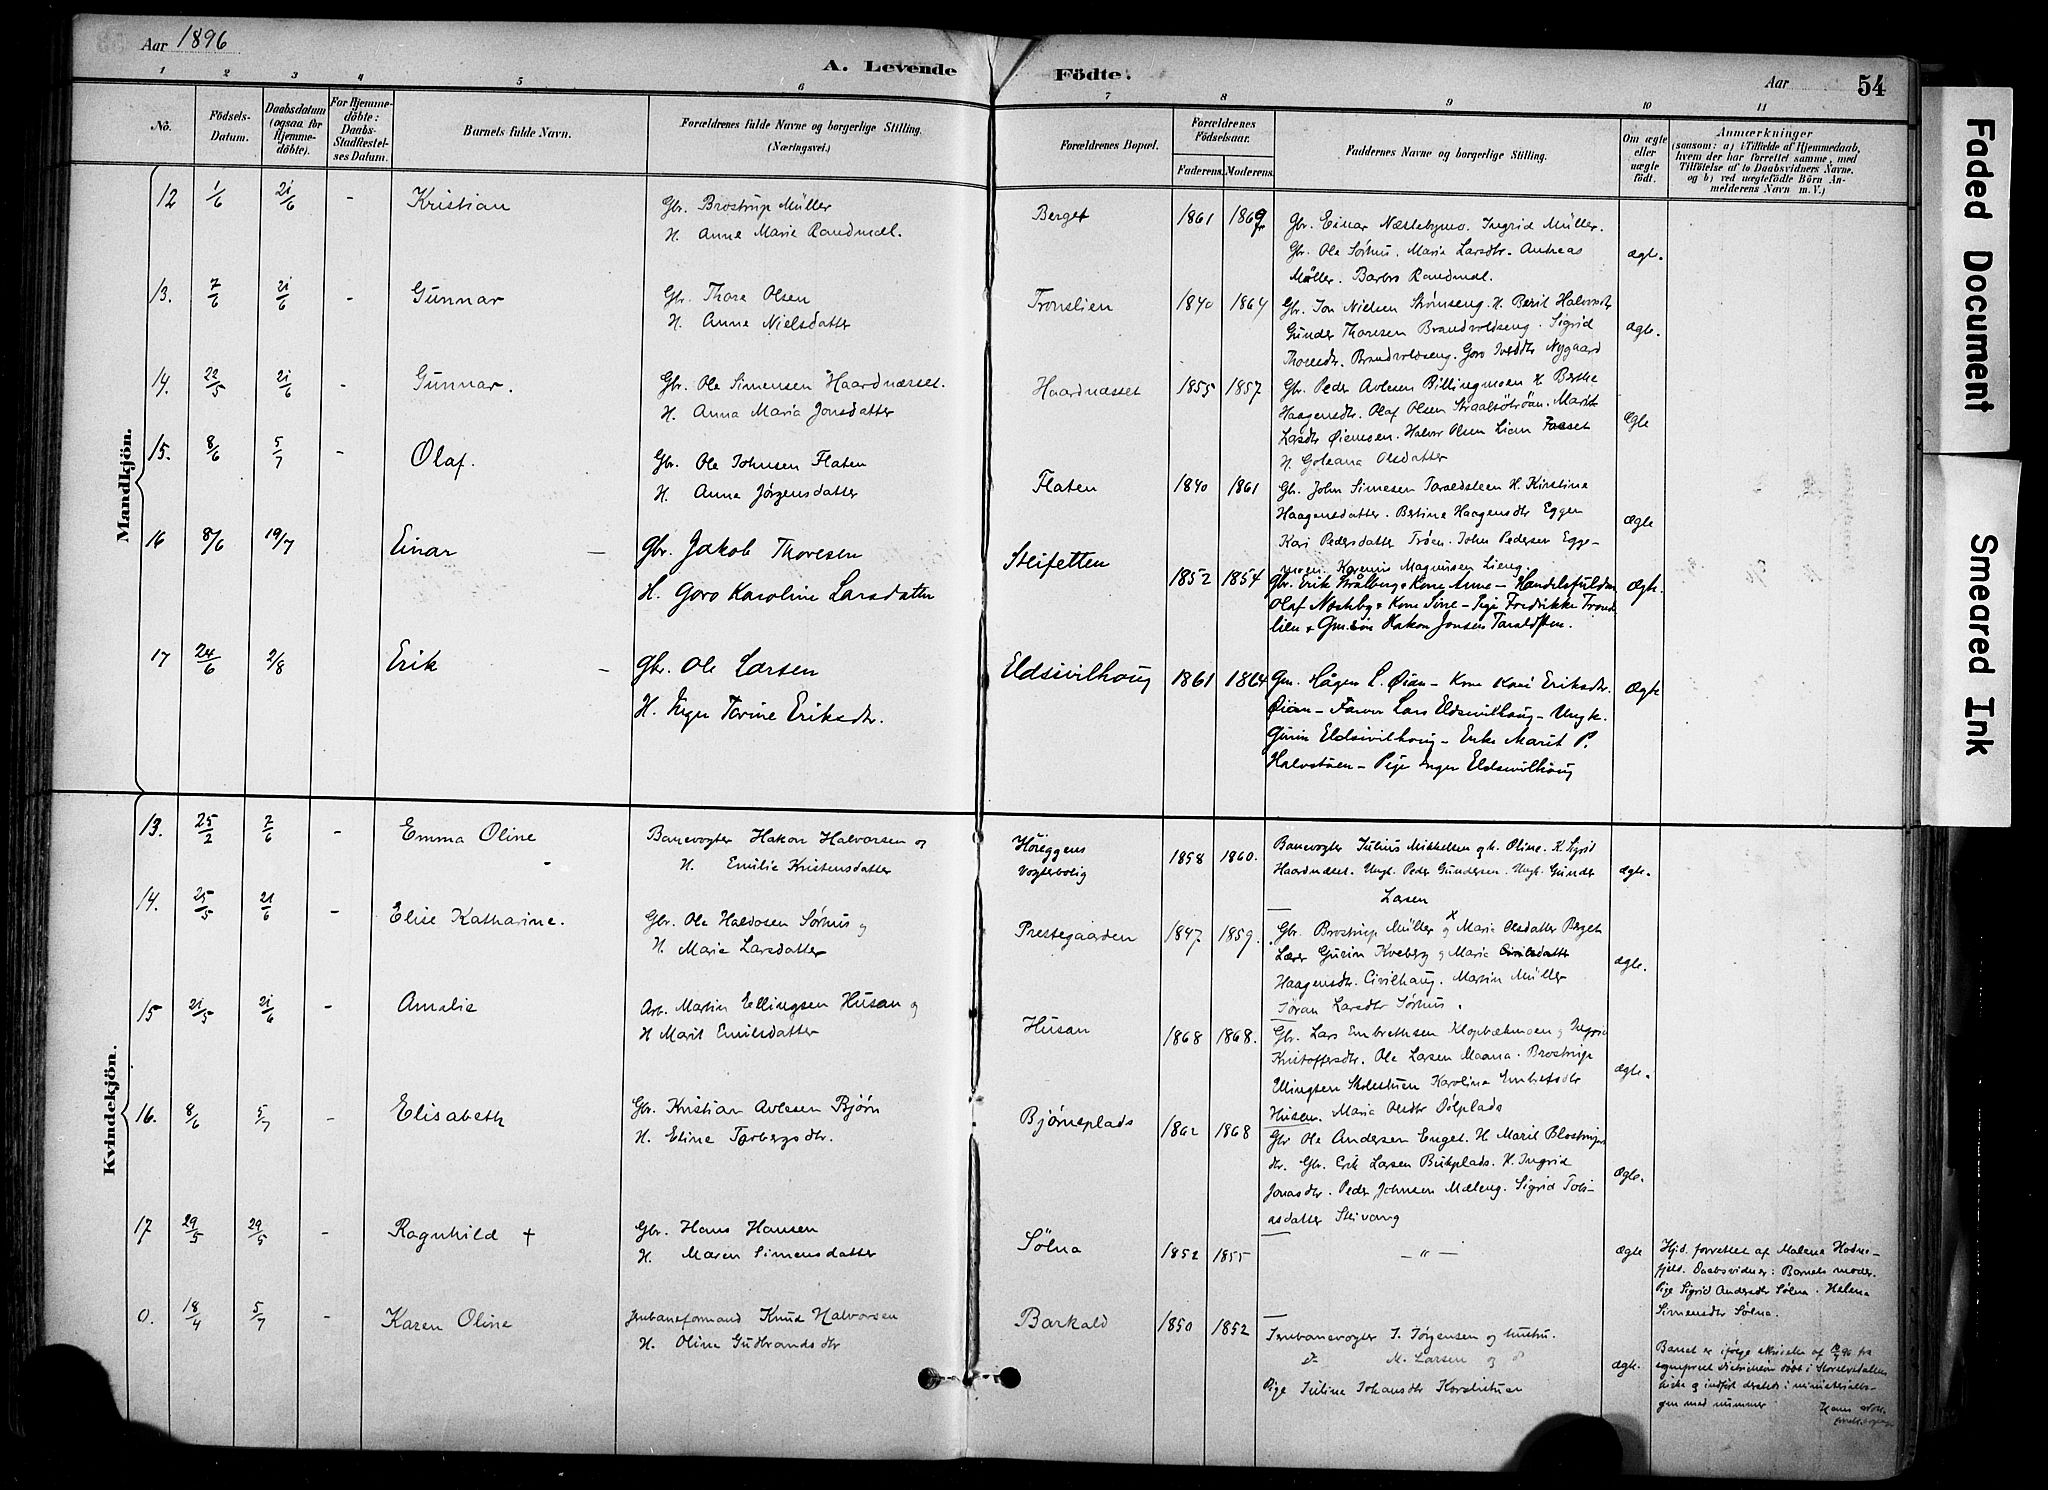 Aar 1896
A. Levende Födte.
Aar
54
1 2 3 4 5 6 7 8 9 10 11
No.
Födsels-Datum.
Daabsdatum (ogsaa for Hjemme-döbte).
For Hjemme-döbte: Daabs-Stadfæstel-ses Datum.
Barnets fulde Navn.
Forældrenes fulde Navne og borgerlige Stilling. (Næringsvei.)
Forældrenes Bopæl.
Forældrenes Födselsaar.
Faderens. Moderens.
Faddernes Navne og borgerlige Stilling.
Om ægte eller uægte födt.
Anmærkninger
(saasom: a) i Tilfælde af Hjemmedaab, hvem der har forrettet samme, med Tilföielse af to Daabsvidners Navne, og b) ved uægtefödte Börn An-melderens Navn m. V.)
Mandkjön.
12 1/6 21/6 - Kristian
Gbr. Brostrup Müller
H. Anne Marie Randmæl.
Berget 1861 1869
Gbr. Einar Næstebymo. Ingrid Müller.
Gbr. Ole Sørhus. Maria Larsdtr. Andreas
Müller. Barbro Randmæl.
ægte.
13. 7/6 21/6 - Gunnar
Gbr. Thore Olsen
H. Anne Nielsdatter
Tronslien 1840 1864
Gbr. Jon Nielsen Strømseng. H. Berit Halvorsdtr
Gunder Thoresen Brandvoldseng. Sigrid
Thoresdtr. Brandvoldseng. Goro Nygaard
ægte.
14. 22/5 21/6 - Gunnar.
Gbr. Ole Simensen Haardnæsset.
H. Anna Maria Jonsdatter
Haardnæsset 1855 1857
Gbr. Peder Avlesen Billingmoen H. Berthe
Haagensdtr. Olaf Olsen Marit
Larsdtr Øiensen. Halvor Olsen Lien
H. Goleana Olsdatter
Ægte
15. 8/6 5/7 - Olaf.
Gbr. Ole Johnsen Flaten
H. Anna Jørgensdatter
Flaten 1840 1861
Gbr. John Simesen H. Kirstine
Haagensdatter. Bertine Haagensdtr Eggen
Kari Pedersdatter Trøen. John Pedersen Egge-
moen. Magnusen Lieng.
ægte
16 8/6 19/7 Einar -
Gbr. Jakob Thoresen
H. Goro Karoline Larsdatter
Steifetten 1852 1854
Gbr. Erik Kone Anne - Handelsfuldm.
Olaf Næsteby & Kone Sine - Pige Fredrikke Trons
lien & Gm.søn Hakon Jonsen
Ægte.
17 24/6 2/8 Erik -
Gbr. Ole Larsen
H. Inger Torine Eriksdtr.
Eldsivilhoug 1861 1864
Gm. Hågen L. Øian - Kone Kari Eriksdtr.
Øian - Farver Lars Eldsivilhoug - Ungk.
Gurin Eldsivilhoug - Enke Marit P.
Halvstuen - Pige Inger Eldsivilhoug
Ægte
Kvindekjön.
13. 25/2 7/6 - Emma Oline -
Banevogter Hakon Halvorsen og
H. Emilie Kristensdatter
Høieggens Vogterbolig 1858 1860.
Banevogter Julius Mikkelsen og h. Oline. K. Sigrid
Haardnæset. Ungk. Peder Gundersen. Ungk. Gunder
Larsen
ægte.
14. 25/5 21/6 - Elise Katharine.
Gbr. Ole Haldosen Sørhus og
H. Marie Larsdatter
Prestegaarden 1847 1859.
Gbr. Brostrup Müller og Marie Olsdatter Berget
Lærer Gurin Kveberg og Marie Civilsdatter
Haagensdtr. Civilhaug. Martin Müller
Jøran Larsdtr Sørhus.
ægte.
15 21/5 21/6 - Amalie
Arb. Martin Ellingsen Husan og
H Marit Emilsdatter
Husan 1868 1868.
Gbr. Lars Embrethsen Klopbækmoen og Ingeborg
Kristoffersdtr. Ole Larsen Maana. Brostrup
Ellingsen Skolestuen Karoline Embretsdtr
Husan. Marie Olsdtr Sølplads
ægte.
16. 8/6 5/7 - Elisabeth
Gbr. Kristian Avlesen Bjørn
H. Eline Torbergsdtr.
Bjørneplads 1862 1868
Gbr Ole Andersen Enget. H Marit Blostrups
dtr. Gbr. Erik Larsen Bukplads. H. Ingrid
Jonasdtr. Peder Johnsen Mæleng. Sigrid Tobi-
asdatter Steivang
ægte.
17 29/5 29/5 - Ragnhild +
Gbr. Hans Hansen
H. Maren Simensdatter
Sølna 1852 1855
- " -
ægte
Hjd. forrettet af Malena Hodne-
fjeld. Daabsvidner: Barnets moder.
Pige Sigrid Andersdtr Sølna. Helena
Simensdtr Sølna.
0. 18/4 5/7 - Karen Oline
Jernbaneformand Knud Halvorsen
H. Oline Gudbrandsdtr
Barkald 1850 1852
Jernbanevogter J. Jørgensen og hustru.
do M. Larsen og do
Pige Juline Johansdtr Korslietuen
ægte.
Barnet er ifølge skrivelse af fra
sogneprest Dietrichson døbt i Storelvedalens
kirke og indført dersteds i ministerialbo-
gen med nummer
Faded Document
Smeared Ink